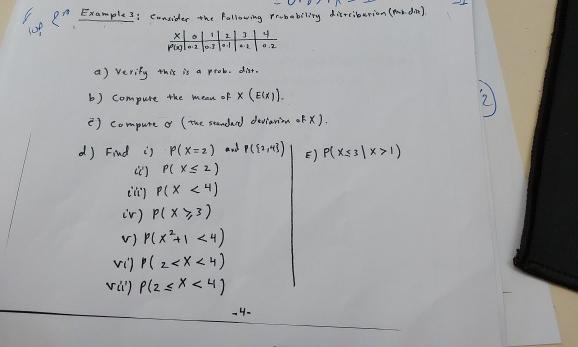 Example 3: Consider the following probability distribution (prob. dist).
X | 0 | 1 | 2 | 3 | 4
P(x) | 0.2 | 0.3 | 0.1 | 0.2 | 0.2
a) Verify this is a prob. dist.
b) Compute the mean of X (E(X)).
c) Compute σ (the standard deviation of X).
d) Find i) P(X=2) and P({2,4})
ii) P(X ≤ 2)
iii) P(X < 4)
iv) P(X ≥ 3)
v) P(X²+1 < 4)
vi) P(2 < X < 4)
vii) P(2 ≤ X < 4)
E) P(X≤3 | X>1)
-4-